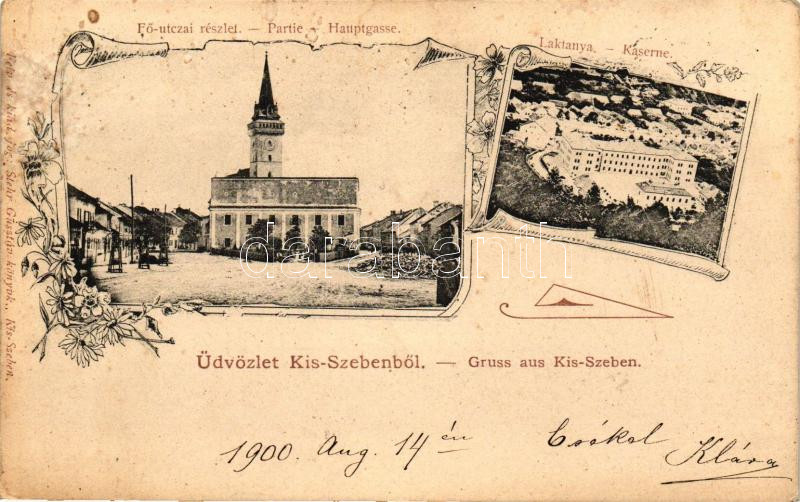 Fő-utczai részlet. — Partie - Hauptgasse.
Laktanya. - Kaserne.
darabanth
Üdvözlet Kis-Szebenből. — Gruss aus Kis-Szeben.
1900. Aug. 14én
Csókol
Klára
Gusztáv könyvk., Kis-Szeben.